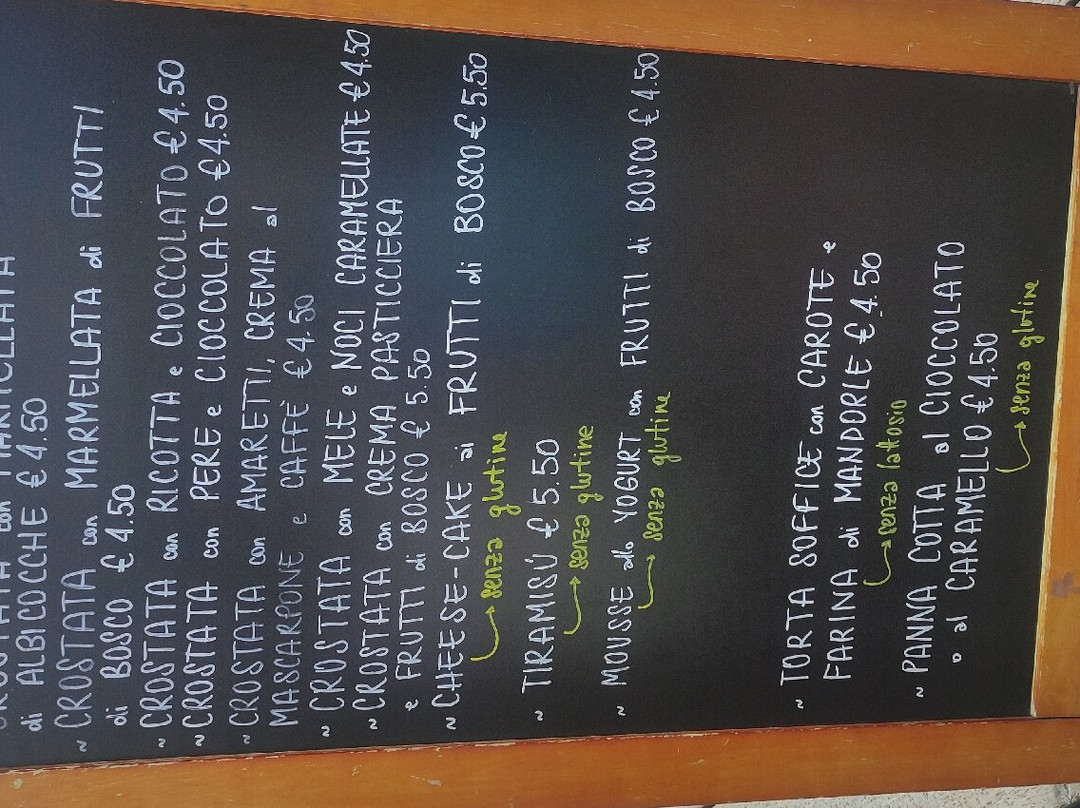 di ALBICOCCHE € 4.50
~ CROSTATA con MARMELLATA di FRUTTI
di BOSCO € 4.50
~ CROSTATA con RICOTTA e CIOCCOLATO € 4.50
~ CROSTATA con PERE e CIOCCOLATO € 4.50
~ CROSTATA con AMARETTI, CREMA al
MASCARPONE e CAFFÈ € 4.50
~ CROSTATA con MELE e NOCI CARAMELLATE € 4.50
~ CROSTATA con CREMA PASTICCIERA
e FRUTTI di BOSCO € 5.50
~ CHEESE-CAKE ai FRUTTI di BOSCO € 5.50
→ senza glutine
~ TIRAMISÙ € 5.50
→ senza glutine
~ MOUSSE allo YOGURT con FRUTTI di BOSCO € 4.50
→ senza glutine
~ TORTA SOFFICE con CAROTE e
FARINA di MANDORLE € 4.50
→ senza lattosio
~ PANNA COTTA al CIOCCOLATO
o al CARAMELLO € 4.50
→ senza glutine